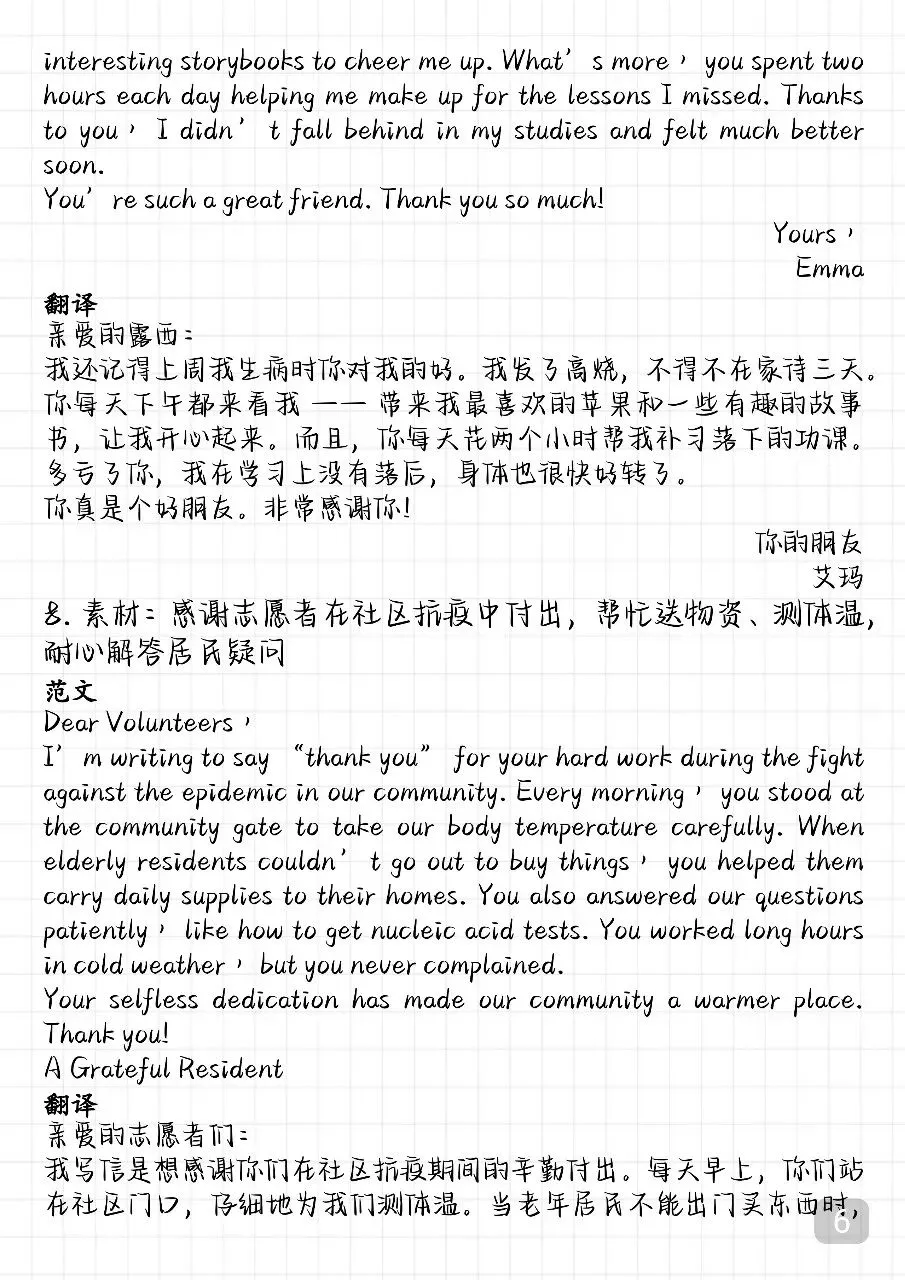 interesting storybooks to cheer me up. What’s more，you spent two
hours each day helping me make up for the lessons I missed. Thanks
to you，I didn’t fall behind in my studies and felt much better
soon.
You’re such a great friend. Thank you so much!
Yours，
Emma
翻译
亲爱的露西：
我还记得上周我生病时你对我的好。我发了高烧，不得不在家待三天。
你每天下午都来看我 —— 带来我最喜欢的苹果和一些有趣的故事
书，让我开心起来。而且，你每天花两个小时帮我补习落下的功课。
多亏了你，我在学习上没有落后，身体也很快好转了。
你真是个好朋友。非常感谢你！
你的朋友
艾玛
8. 素材：感谢志愿者在社区抗疫中付出，帮忙送物资、测体温，
耐心解答居民疑问
范文
Dear Volunteers，
I’m writing to say “thank you” for your hard work during the fight
against the epidemic in our community. Every morning，you stood at
the community gate to take our body temperature carefully. When
elderly residents couldn’t go out to buy things，you helped them
carry daily supplies to their homes. You also answered our questions
patiently，like how to get nucleic acid tests. You worked long hours
in cold weather，but you never complained.
Your selfless dedication has made our community a warmer place.
Thank you!
A Grateful Resident
翻译
亲爱的志愿者们：
我写信是想感谢你们在社区抗疫期间的辛勤付出。每天早上，你们站
在社区门口，仔细地为我们测体温。当老年居民不能出门买东西时，
6